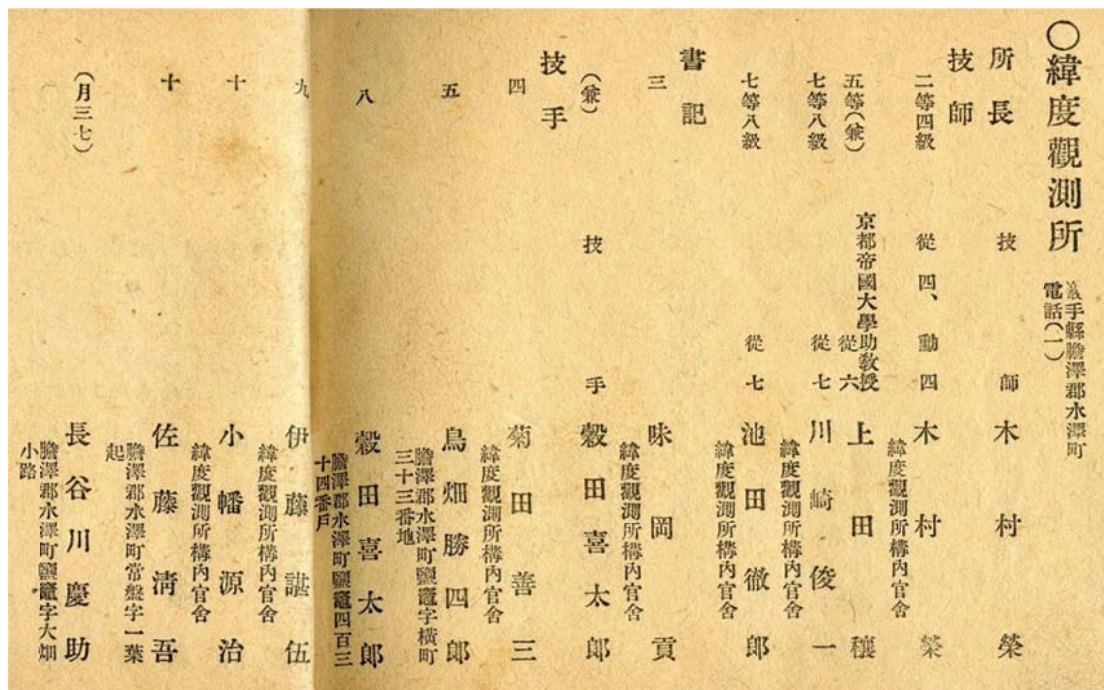 ○緯度觀測所
岩手縣膽澤郡水澤町
電話(一)
所長 技師 木村榮
技師
二等四級 從四、勳四 木村榮
緯度觀測所構內官舍
五等(兼) 京都帝國大學助敎授 從六 上田穰
七等八級 從七 川崎俊一
緯度觀測所構內官舍
七等八級 從七 池田徹郎
緯度觀測所構內官舍
書記
三 味岡貢
緯度觀測所構內官舍
(兼) 技手 穀田喜太郎
技手
四 菊田善三
緯度觀測所構內官舍
五 鳥畑勝四郎
膽澤郡水澤町鹽竈字橫町
三十三番地
八 穀田喜太郎
膽澤郡水澤町鹽竈四百三
十四番戶
九 伊藤諶伍
緯度觀測所構內官舍
十 小幡源治
緯度觀測所構內官舍
十 佐藤淸吾
膽澤郡水澤町常盤字一葉
起
(月三七) 長谷川慶助
膽澤郡水澤町鹽竈字大畑
小路